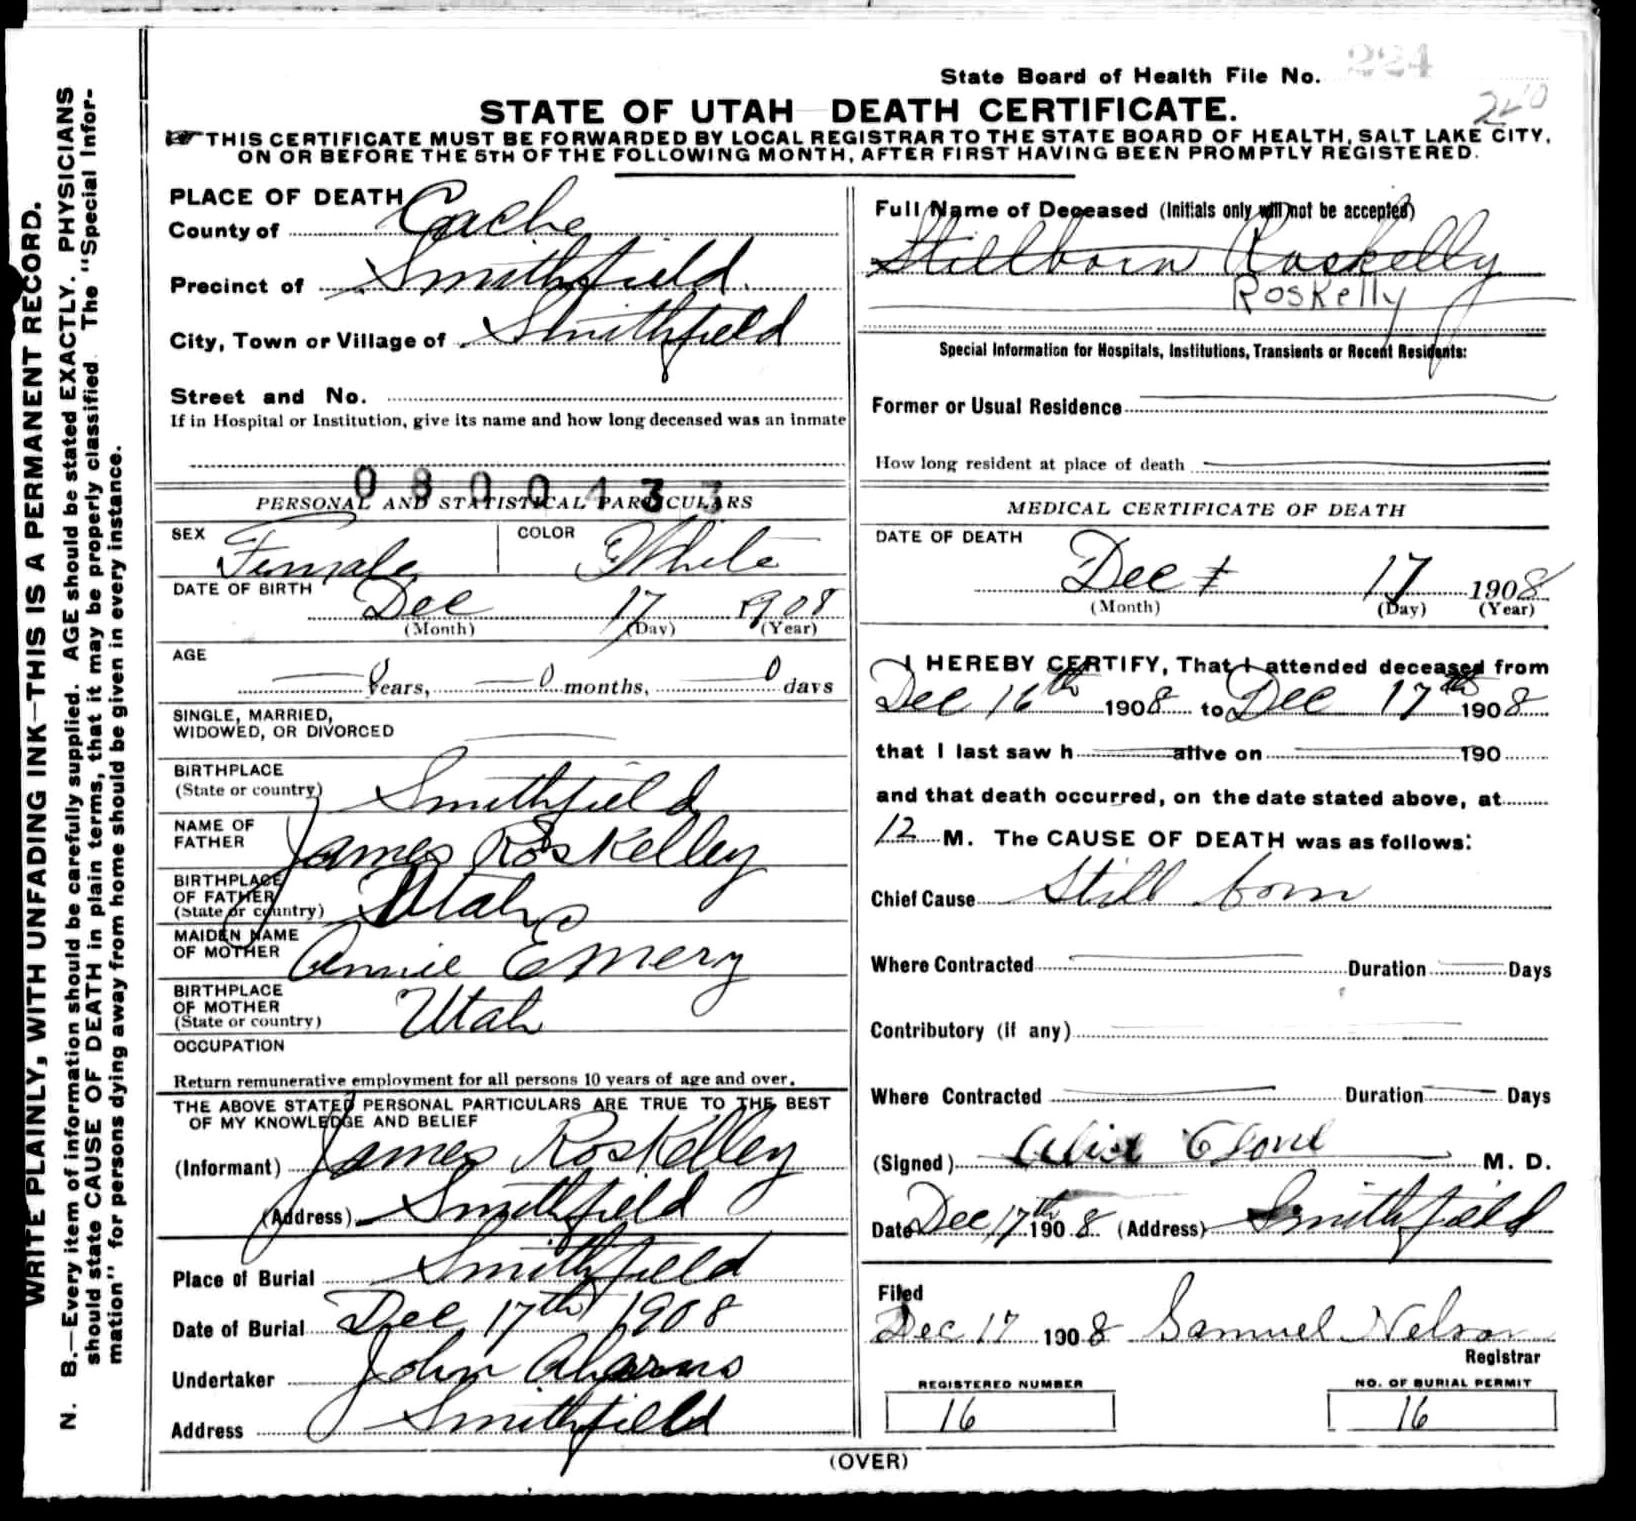 State Board of Health File No. 224
240
STATE OF UTAH DEATH CERTIFICATE.
THIS CERTIFICATE MUST BE FORWARDED BY LOCAL REGISTRAR TO THE STATE BOARD OF HEALTH, SALT LAKE CITY,
ON OR BEFORE THE 5TH OF THE FOLLOWING MONTH, AFTER FIRST HAVING BEEN PROMPTLY REGISTERED.
WRITE PLAINLY, WITH UNFADING INK—THIS IS A PERMANENT RECORD.
N. B.—Every item of information should be carefully supplied. AGE should be stated EXACTLY. PHYSICIANS
should state CAUSE OF DEATH in plain terms, that it may be properly classified. The "Special Infor-
mation" for persons dying away from home should be given in every instance.
PLACE OF DEATH
County of Cache
Precinct of Smithfield
City, Town or Village of Smithfield
Street and No.
If in Hospital or Institution, give its name and how long deceased was an inmate
0800433
PERSONAL AND STATISTICAL PARTICULARS
SEX Female COLOR White
DATE OF BIRTH
Dec 17 1908
(Month) (Day) (Year)
AGE
0 Years, 0 months, 0 days
SINGLE, MARRIED,
WIDOWED, OR DIVORCED
BIRTHPLACE
(State or country) Smithfield
NAME OF
FATHER James Roskelley
BIRTHPLACE
OF FATHER
(State or country) Utah
MAIDEN NAME
OF MOTHER Annie Emery
BIRTHPLACE
OF MOTHER
(State or country) Utah
OCCUPATION
Return remunerative employment for all persons 10 years of age and over.
THE ABOVE STATED PERSONAL PARTICULARS ARE TRUE TO THE BEST
OF MY KNOWLEDGE AND BELIEF
(Informant) James Roskelley
(Address) Smithfield
Place of Burial Smithfield
Date of Burial Dec 17th 1908
Undertaker John
Address Smithfield
Full Name of Deceased (Initials only will not be accepted)
Stillborn Roskelly
Roskelly
Special Information for Hospitals, Institutions, Transients or Recent Residents:
Former or Usual Residence
How long resident at place of death
MEDICAL CERTIFICATE OF DEATH
DATE OF DEATH
Dec 17 1908
(Month) (Day) (Year)
I HEREBY CERTIFY, That I attended deceased from
Dec 16th 1908 to Dec 17th 1908
that I last saw h alive on 190
and that death occurred, on the date stated above, at
12 M. The CAUSE OF DEATH was as follows:
Chief Cause Still born
Where Contracted Duration Days
Contributory (if any)
Where Contracted Duration Days
(Signed) M. D.
Date Dec 17th 1908 (Address) Smithfield
Filed
Dec 17 1908 Samuel Nelson
Registrar
REGISTERED NUMBER
16
NO. OF BURIAL PERMIT
16
(OVER)